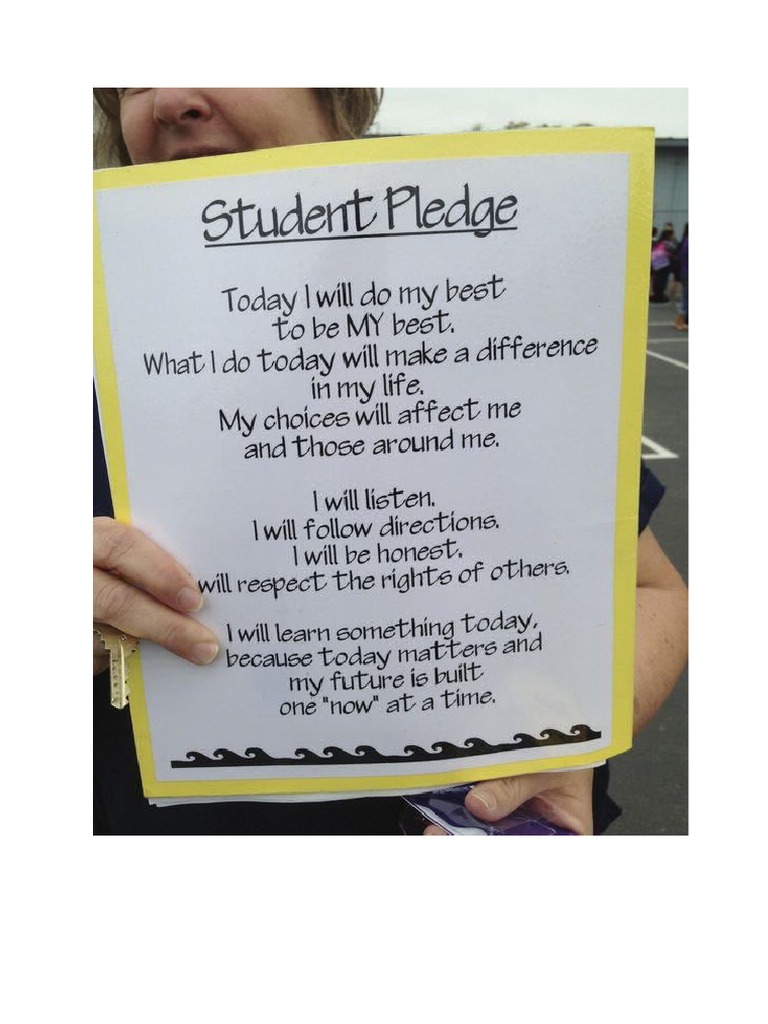 Student Pledge
Today I will do my best
to be MY best.
What I do today will make a difference
in my life.
My choices will affect me
and those around me.
I will listen.
I will follow directions.
I will be honest.
will respect the rights of others.
I will learn something today,
because today matters and
my future is built
one "now" at a time.